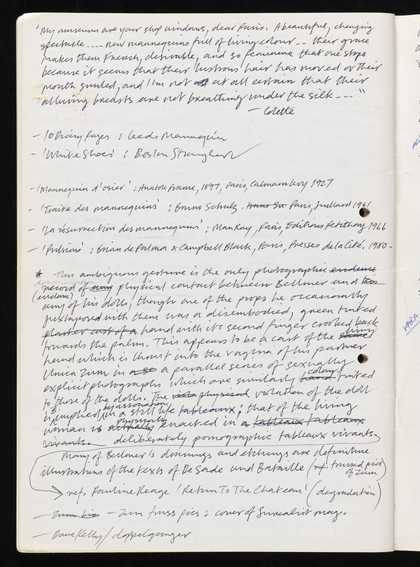 'My museums are your shop windows, dear Paris. A beautiful, changing
spectacle .... new mannequins full of living colour -- their grace
makes them French, desirable, and so feminine that one stops
because it seems that their lustrous hair has moved or their
mouth smiled, and I'm not at all certain that their
alluring breasts are not breathing under the silk ---"
- Colette
- : Leeds Mannequin
- 'White Shoes' : Boston Strangler
- 'Mannequin d'osier' : Anatole France, 1897, Paris, Calmann Levy 1927
- 'Traite des mannequins' : Bruno Schulz. Paris, Julliard 1961
- 'La résurrection des mannequins' : Man Ray, Paris, Editions Petithory 1966
- 'Pulsions' : Brian de Palma & Campbell Black, Paris, Presses de la Cité, 1980 -
* - This ambiguous gesture is the only photographic evidence
record of any physical contact between Bellmer and
(evidence) any of his dolls, though one of the props he occasionally
juxtaposed with them was a disembodied, green tinted
plaster cast of a hand with it's second finger crooked back
towards the palm. This appears to be a cast of the
hand which is thrust into the vagina of his partner
Unica Zurn in a parallel series of sexually
explicit photographs which are similarly hand tinted
to those of the dolls. The violation of the doll
is implied in a still life tableaux; that of the living
woman is actually enacted in a tableaux
vivants. deliberately pornographic tableaux vivants.
Many of Bellmer's drawings and etchings are definitive
illustrations of the texts of De Sade and Bataille
of Zurn
→ ref. Pauline Reage 'Return To The Chateau' (degradation)
- Zurn truss pics : cover of Surrealist mag.
- Dave Kelly / doppelganger